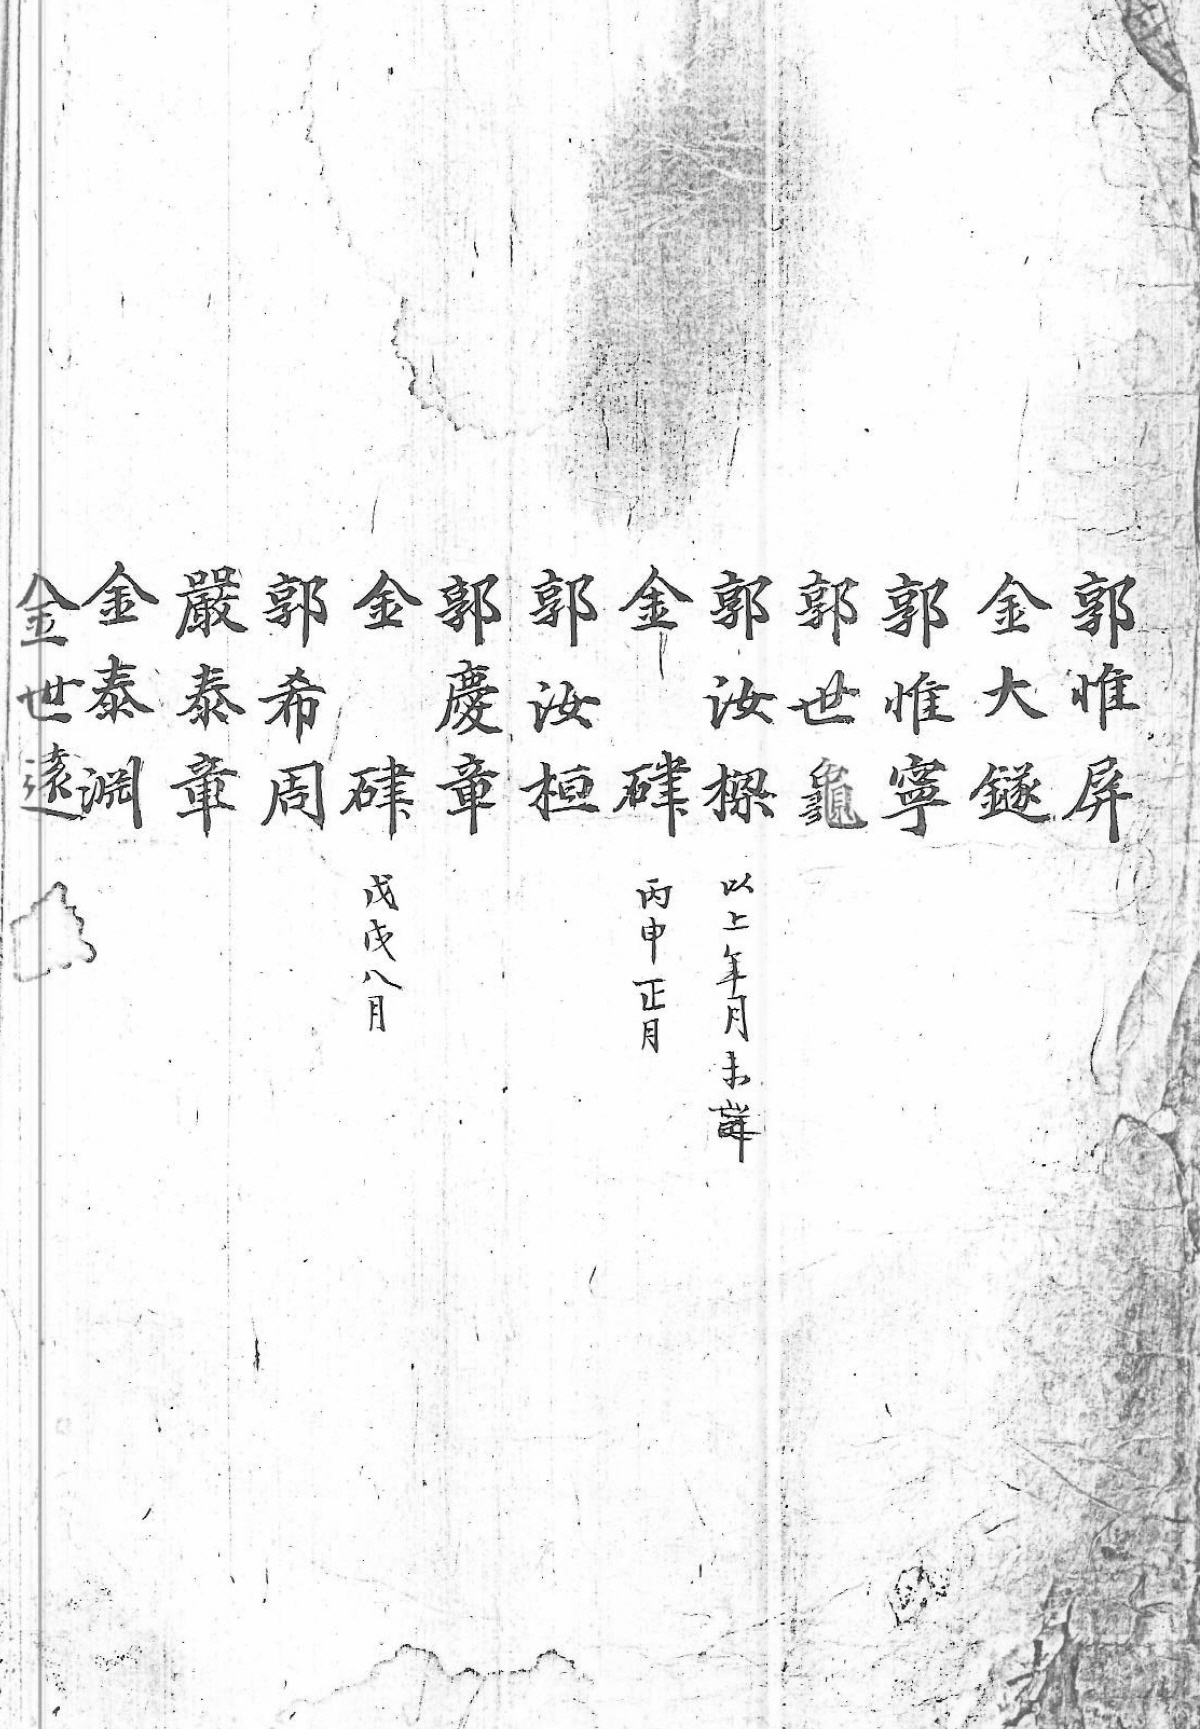 郭惟屏
金大鐩
郭惟寧
郭世龜
郭汝樑 以上年月未詳
金硉 丙申正月
郭汝桓
郭慶章
金硉 戊戌八月
郭希周
嚴泰章
金泰淵
金世遠